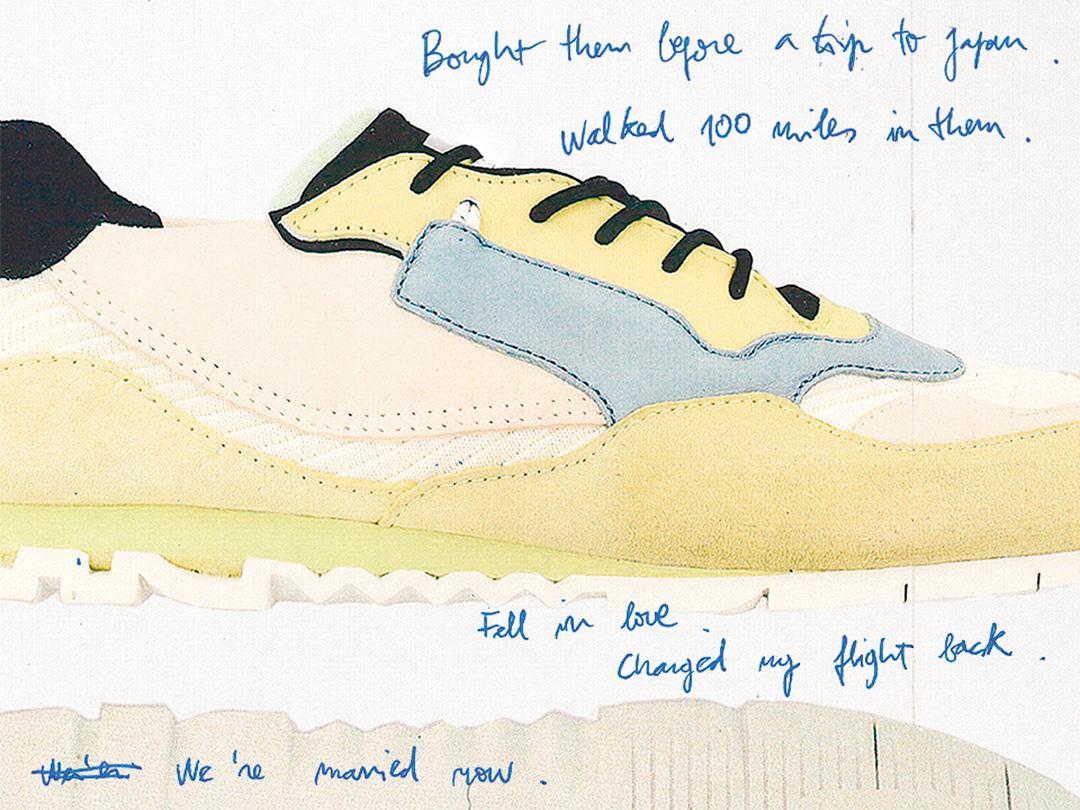 Bought them before a trip to Japan.
Walked 100 miles in them.
Fell in love.
Changed my flight back.
We're married now.